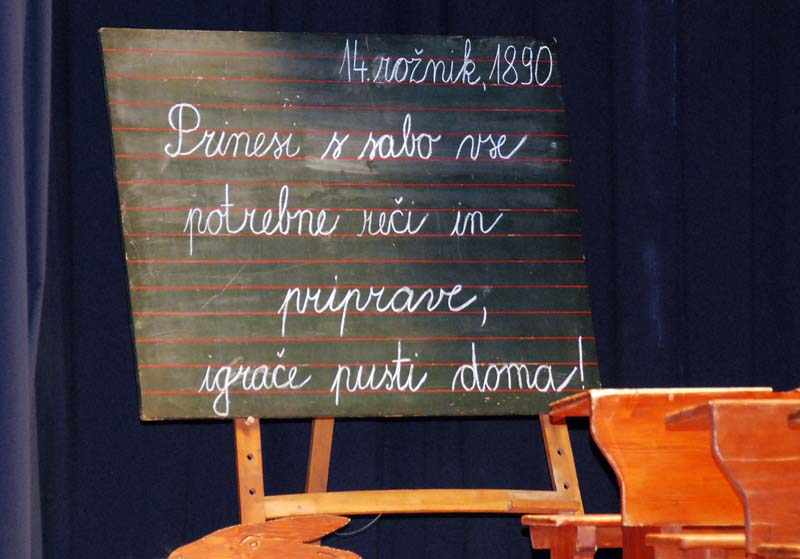 14. rožnik, 1890
Prinesi s sabo vse
potrebne reči in
priprave,
igrače pusti doma!